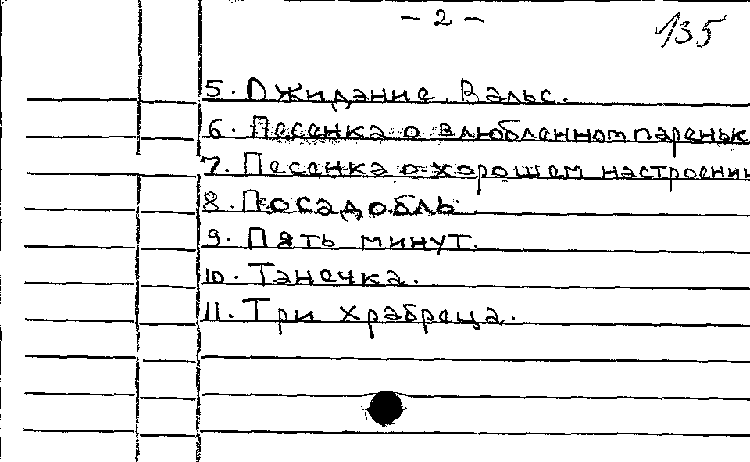 – 2 –
135
5. Ожидание. Вальс.
6. Песенка о влюбленном пареньк
7. Песенка о хорошем настроении
8. Посадобль
9. Пять минут.
10. Танечка.
11. Три храбреца.